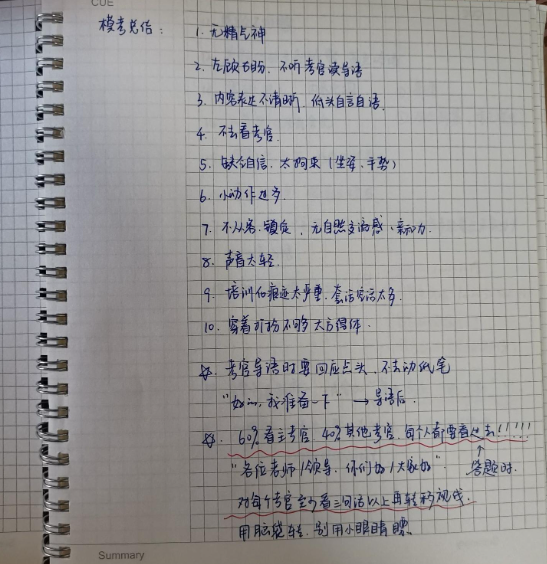 CUE
模考总结：
1. 无精气神
2. 左顾右盼，不听考官读导语
3. 内容表达不清晰，低头自言自语.
4. 不去看考官.
5. 缺乏自信，太拘束（坐姿、手势）
6. 小动作过多
7. 不从容、镇定，无自然交流感、亲和力.
8. 声音太轻.
9. 培训的痕迹太严重，套话空话太多.
10. 穿着打扮不够大方得体.
考官导语时要回应点头，不去动纸笔
"好的，我准备一下" → 导语后.
60%看主考官 40%其他考官，每个人都要看过去！！！！
"各位老师/领导，你们好/大家好" 答题时.
对每个考官至少看三句话以上再转移视线.
用脑袋转，别用小眼睛瞟
Summary